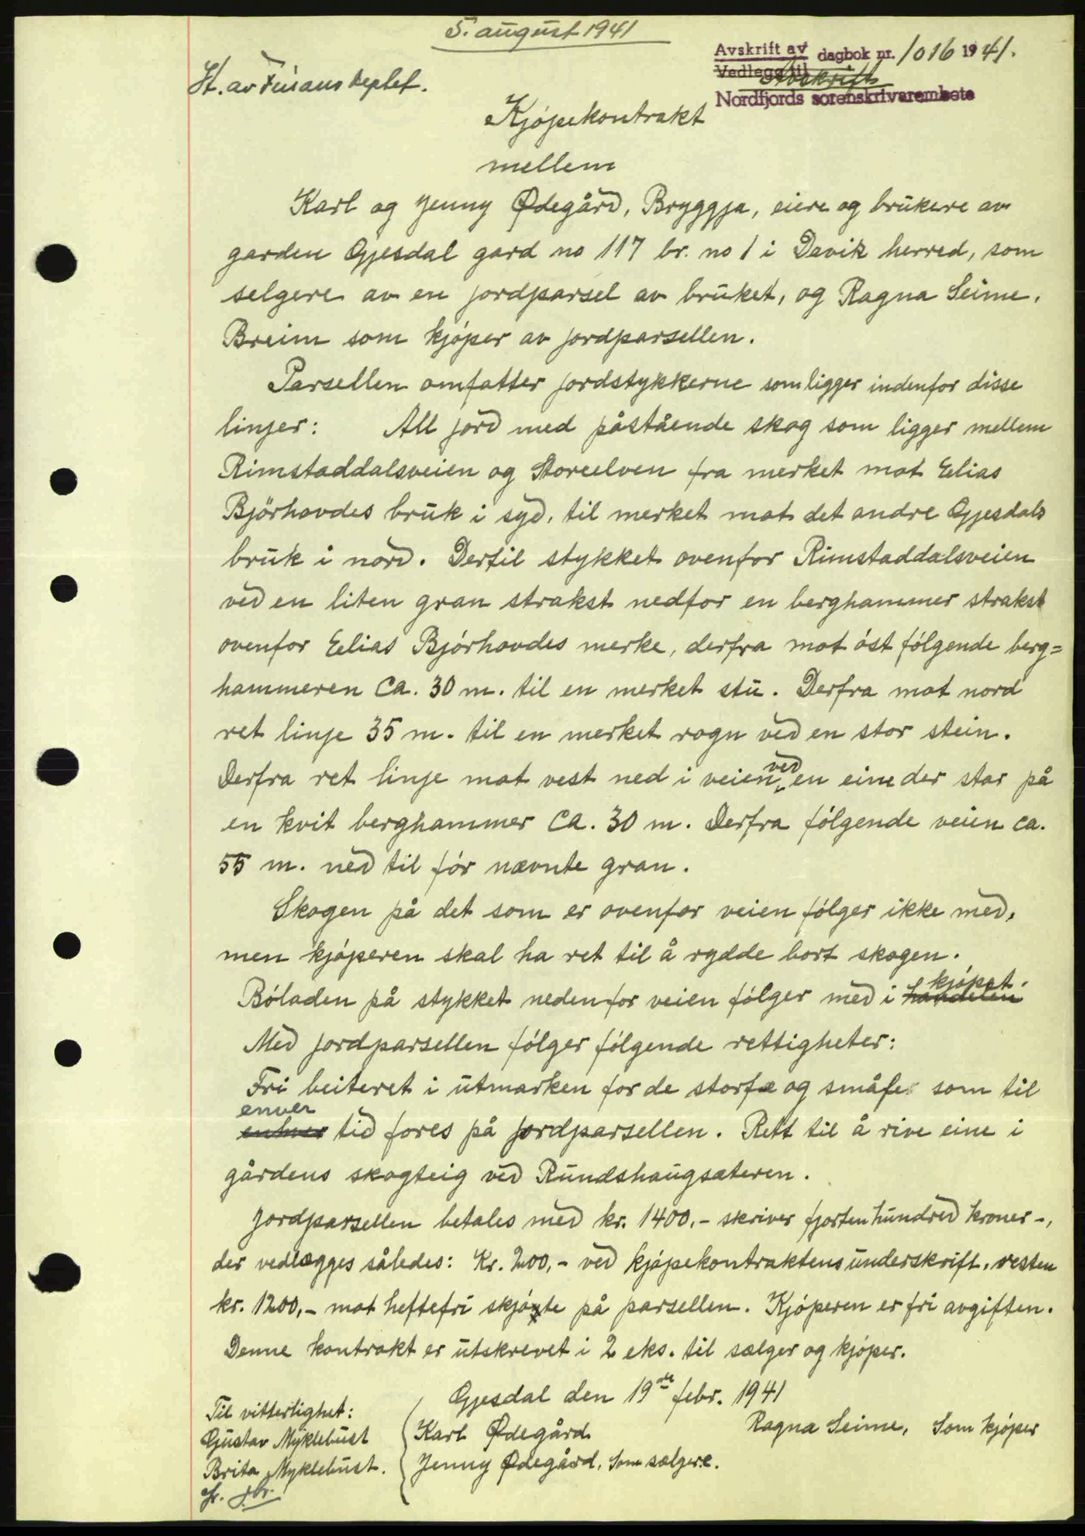 5. august 1941
Avskrift av dagbok nr. 1016 1941.
Vedlegg til Avskrift
St. av Finansdeptet.
Nordfjords sorenskrivarembete
Kjøpekontrakt
mellem
Karl og Jenny Ødegård, Bryggja, eiere og brukere av
garden Gjesdal gard no 117 br. no 1 i Davik herred, som
selgere av en jordparsel av bruket, og Ragna Seime,
Breim som kjøper av jordparsellen.
Parsellen omfatter jordstykkerne som ligger indenfor disse
linjer: All jord med påstående skog som ligger mellem
Rimstaddalsveien og Storeelven fra merket mot Elias
Bjørhovdes bruk i syd, til merket mot det andre Gjesdals
bruk i nord. Dertil stykket ovenfor Rimstaddalsveien
ved en liten gran strakst nedfor en berghammer strakst
ovenfor Elias Bjørhovdes merke, derfra mot øst følgende berg=
hammeren ca. 30 m. til en merket stu. Derfra mot nord
ret linje 35 m. til en merket rogn ved en stor stein.
Derfra ret linje mot vest ned i veien ved en eine der star på
en kvit berghammer ca. 30 m. Derfra følgende veien ca.
55 m. ned til før nævnte gran.
Skogen på det som er ovenfor veien følger ikke med,
men kjøperen skal ha ret til å rydde bort skogen.
Bøladen på stykket nedenfor veien følger med i handelen kjøpet.
Med jordparsellen følger følgende rettigheter:
Fri beiteret i utmarken for de storfe og småfe som til
enhver enver tid fores på jordparsellen. Rett til å rive eine i
gårdens skogteig ved Rundshaugsæteren.
Jordparsellen betales med kr. 1400,- skriver fjortenhundred kroner -,
der vedlægges således: Kr. 200,- ved kjøpekontraktens underskrift, resten
kr. 1200,- mot heftefri skjøte på parsellen. Kjøperen er fri avgiften.
Denne kontrakt er utskrevet i 2 eks. til sælger og kjøper.
Gjesdal den 19de febr. 1941
Til vitterlighet:
Gjustav Myklebust Karl Ødegård Ragna Seime, Som kjøper
Brita Myklebust. Jenny Ødegård, Som sælgere.